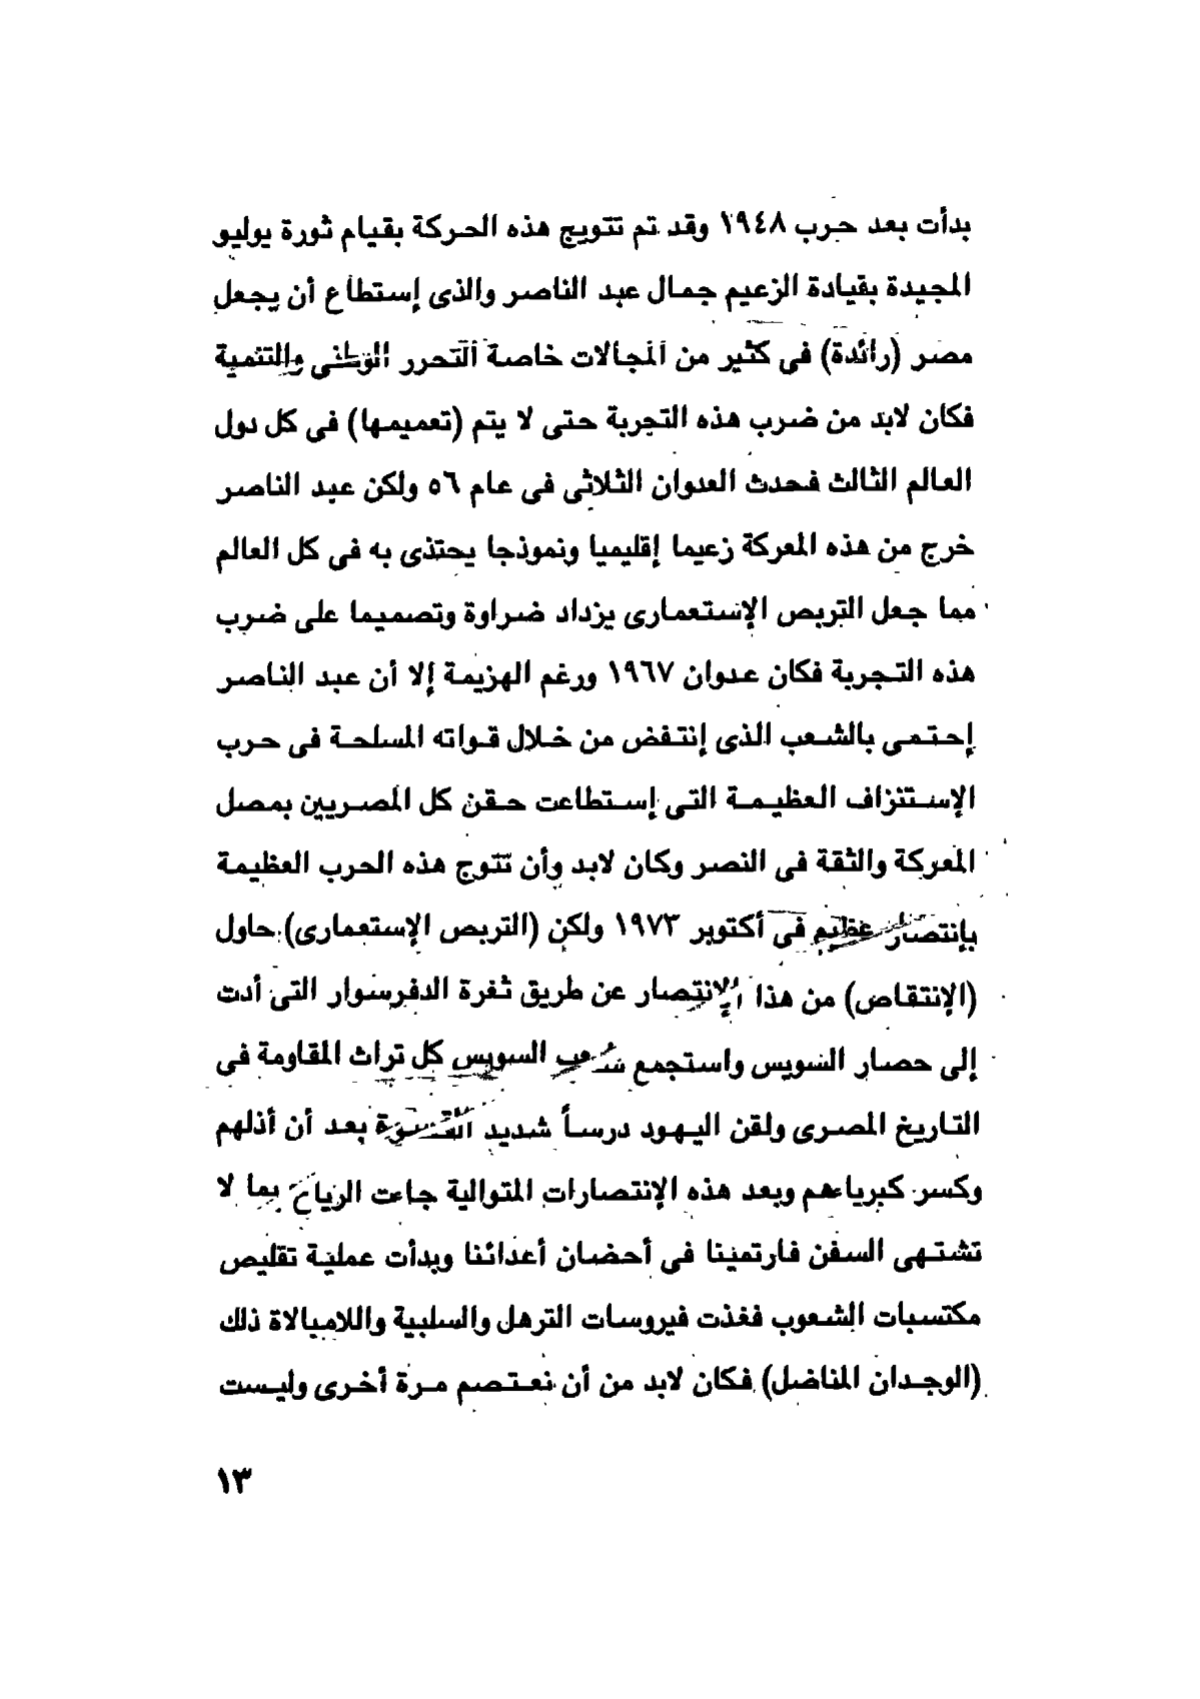 بدأت بعد حرب ١٩٤٨ وقد تم تتويج هذه الحركة بقيام ثورة يوليو
المجيدة بقيادة الزعيم جمال عبد الناصر والذى إستطاع أن يجعل
مصر (رائدة) فى كثير من المجالات خاصة التحرر الوطنى والتنمية
فكان لابد من ضرب هذه التجربة حتى لا يتم (تعميمها) فى كل دول
العالم الثالث فحدث العدوان الثلاثى فى عام ٥٦ ولكن عبد الناصر
خرج من هذه المعركة زعيما إقليميا ونموذجا يحتذى به فى كل العالم
مما جعل التربص الإستعمارى يزداد ضراوة وتصميما على ضرب
هذه التجربة فكان عدوان ١٩٦٧ ورغم الهزيمة إلا أن عبد الناصر
إحتمى بالشعب الذى إنتفض من خلال قواته المسلحة فى حرب
الإستنزاف العظيمة التى إستطاعت حقن كل المصريين بمصل
المعركة والثقة فى النصر وكان لابد وأن تتوج هذه الحرب العظيمة
بإنتصار عظيم فى أكتوبر ١٩٧٣ ولكن (التربص الإستعمارى) حاول
(الإنتقاص) من هذا الإنتصار عن طريق ثغرة الدفرسوار التى أدت
إلى حصار السويس واستجمع شعب السويس كل تراث المقاومة فى
التاريخ المصرى ولقن اليهود درساً شديد القسوة بعد أن أذلهم
وكسر كبرياءهم وبعد هذه الإنتصارات المتوالية جاءت الرياح بما لا
تشتهى السفن فارتمينا فى أحضان أعدائنا وبدأت عملية تقليص
مكتسبات الشعوب فغذت فيروسات الترهل والسلبية واللامبالاة ذلك
(الوجدان المناضل) فكان لابد من أن نعتصم مرة أخرى وليست
١٣